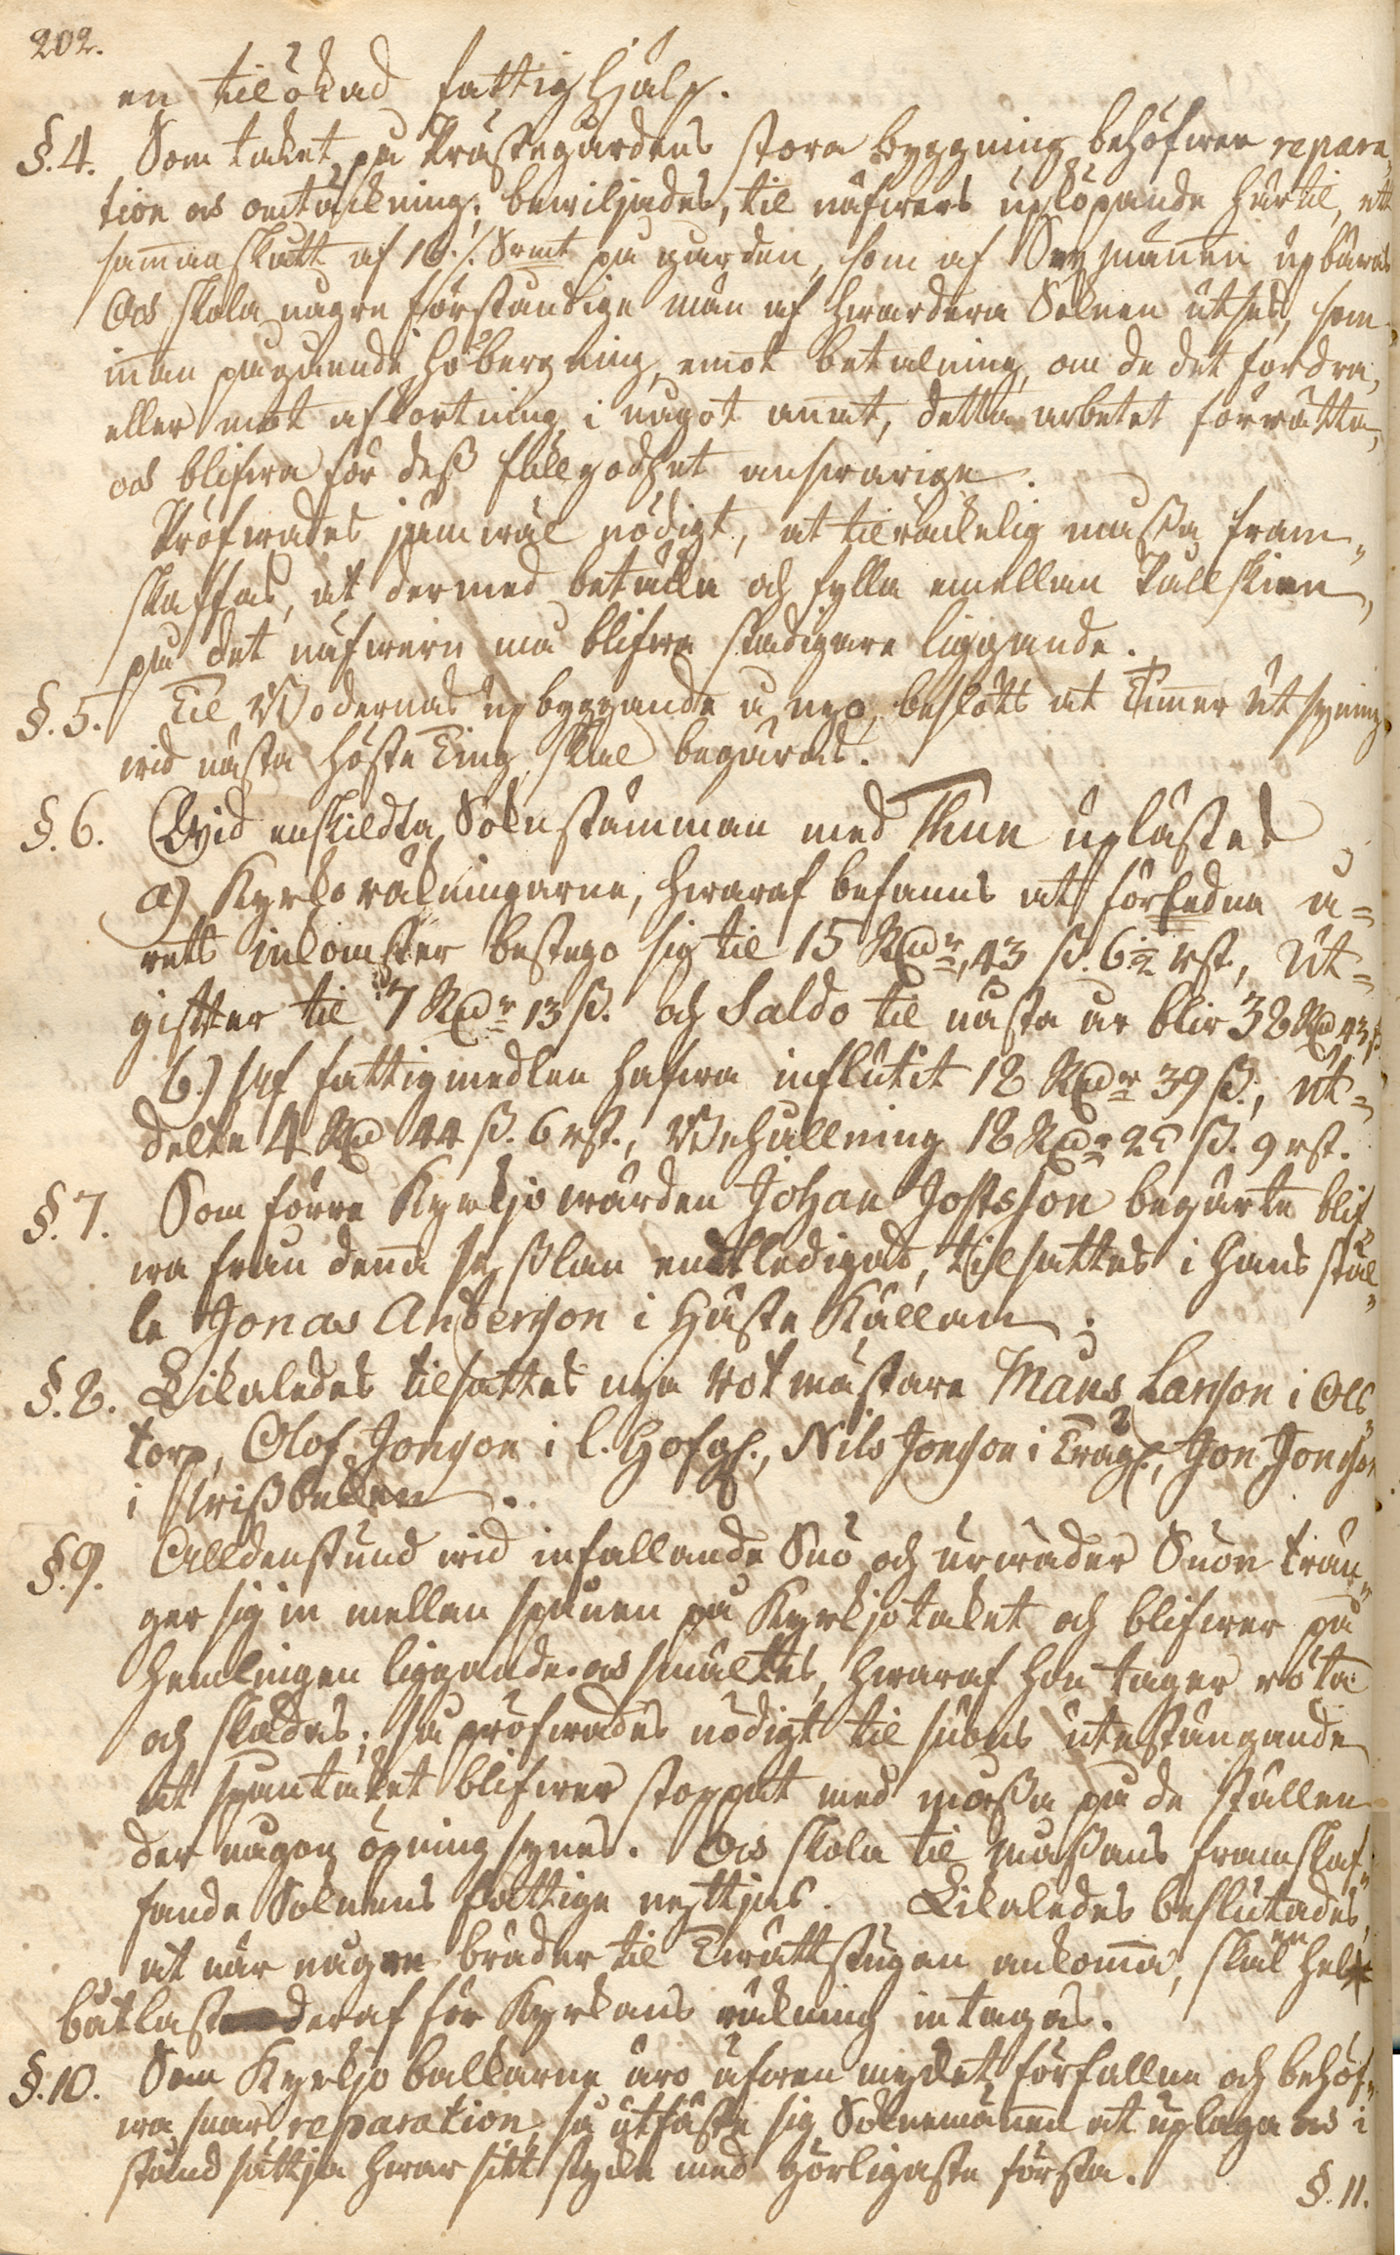 202.
en tilökad fattighjälp.
§. 4. Som taket på Prästegårdens stora byggning behöfwer repara„
tion os omtäckning; bewiljades, til näfwers upköpande härtil, ett
sam̄anskått af 16. /. Srmt på gården, som af Sexmännen upbäres
Os skola några förståndige män af hwardera Soknen utses, som
in̄an påguende höbergning, emot betalning, om de det fordra,
eller mot afkortning i något an̄at, detta arbetet förrätta,
os blifwa för deß fullgodhet answarige.
Pröfwades jämwäl nödigt, at tilräckelig måßa fram„
skaffas, at dermed betäcka och fylla emellan Tallskien,
på det näfwern må blifwa stadigare liggande.
§. 5. Til Bodernas upbyggande å nyo, beslöts at Tim̄er utsyning
wid nästa höste Ting skal begäras.
§. 6. Wid enskildta Soknstämman med Thun uplästes
a) Kyrkoräkningarne, hwaraf befanns at förledna å=
rets inkomster bestego sig til 15 Rdr, 43 ß. 6½ rst., Ut=
gifter til 7 Rdr 13 ß. och Saldo til nästa år blir 38 Rd 43 ß
b.) Af fattigmedlen hafwa influtit 18 Rdr 39 ß., ut=
delte 4 Rd 44 ß. 6 rst., Behållning 18 Rdr 25 ß. 9 rst.
§. 7. Som förre Kyrkjowärden Johan Jostsson begärte blif„
wa från den̄a syßlan entledigad, tilsattes i hans stäl„
le Jonas Anderson i Häste Källan.
§. 8. Likaledes tilsattes nya Rotmästare Måns Larson i Ols„
torp, Olof Jonson i l. Hofgh., Nils Jonson i Trägh., Jon Jonson
i Krißbecken.
§. 9. Alldenstund wid infallande Snö och urwäder Snön trän„
ger sig in mellan spånen på Kyrkjotaket och blifwer på
hemlingen liggande os smältes, hwaraf hon tager röta
och skadas; så pröfwades nödigt til snöns utestängande
at spåntaket blifwer stoppat med moßa på de ställen
der någon öpning synes. Os skola til måßans framskaf„
fande Soknens fattige nyttjas. Likaledes beslutades,
at när någre bräder til Twättstugan ankom̄a, skal en hel
båtlast deraf för Kyrkans räkning intagas.
§. 10. Som Kyrkjobalkarne äro äfwen mycket förfallne och behöf„
wa snar reparation, så utfäste sig Soknemän̄en at uplaga os i
stånd sättja hwar sitt stycke med görligaste första.
§. 11.